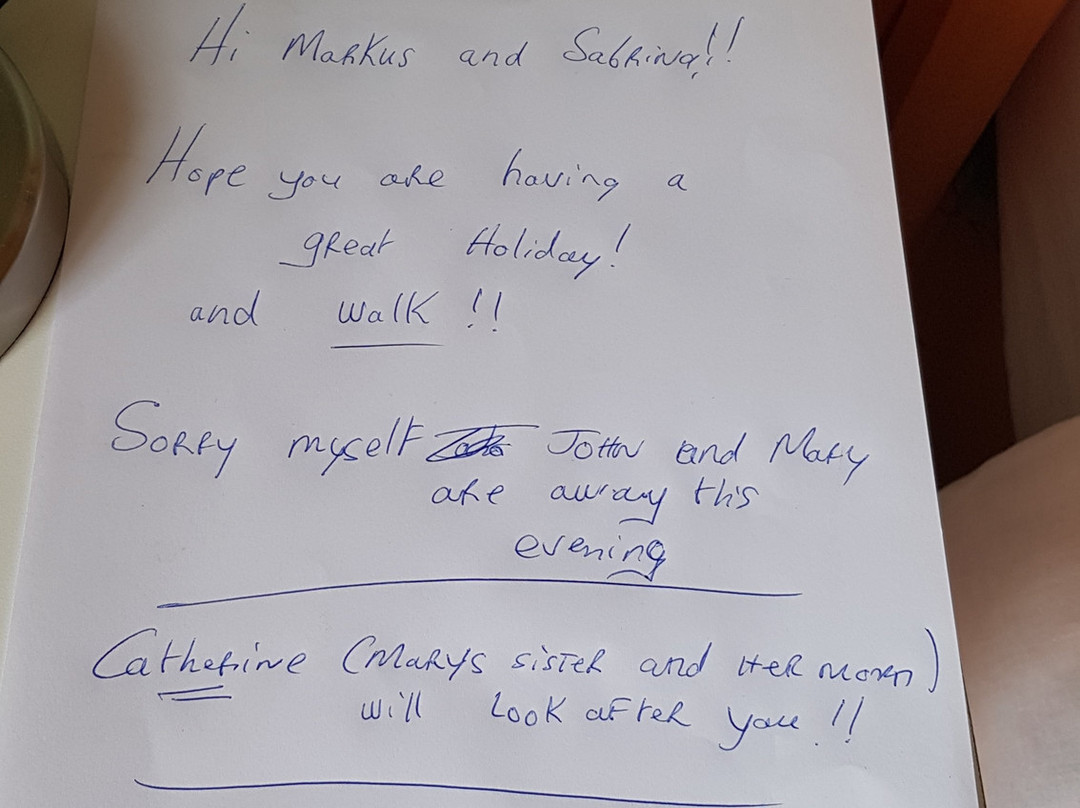 Hi Markus and Sabrina!!
Hope you are having a
great Holiday!
and walk !!
Sorry myself John and Mary
are away this
evening
Catherine (Marys sister and Her
will look after you !!